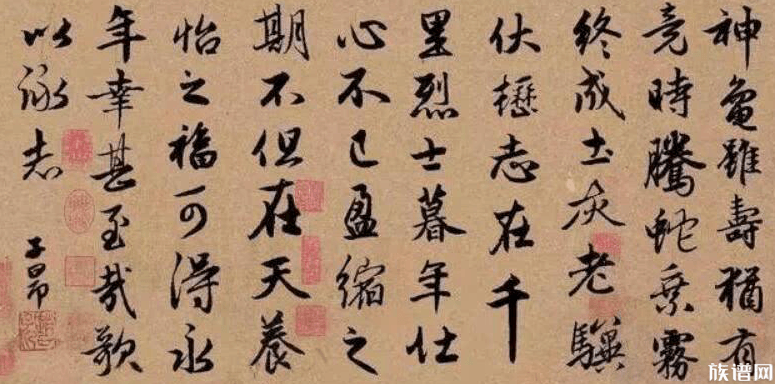 神龜雖壽猶有
竟時騰蛇乘霧
終成土灰老驥
伏櫪志在千
里烈士暮年壯
心不已盈縮之
期不但在天養
怡之福可得永
年幸甚至哉歌
以詠志
子昂
族谱网